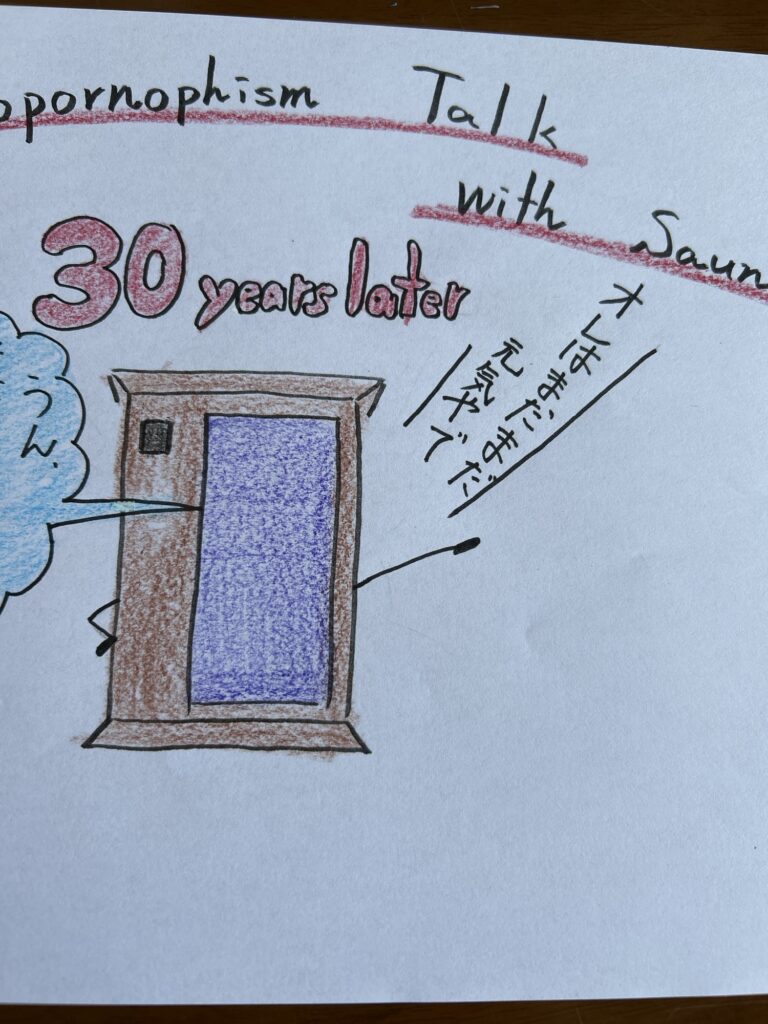 opornophism Talk
with Saun
30 years later
オレはまだまだ
元気やで
うん、